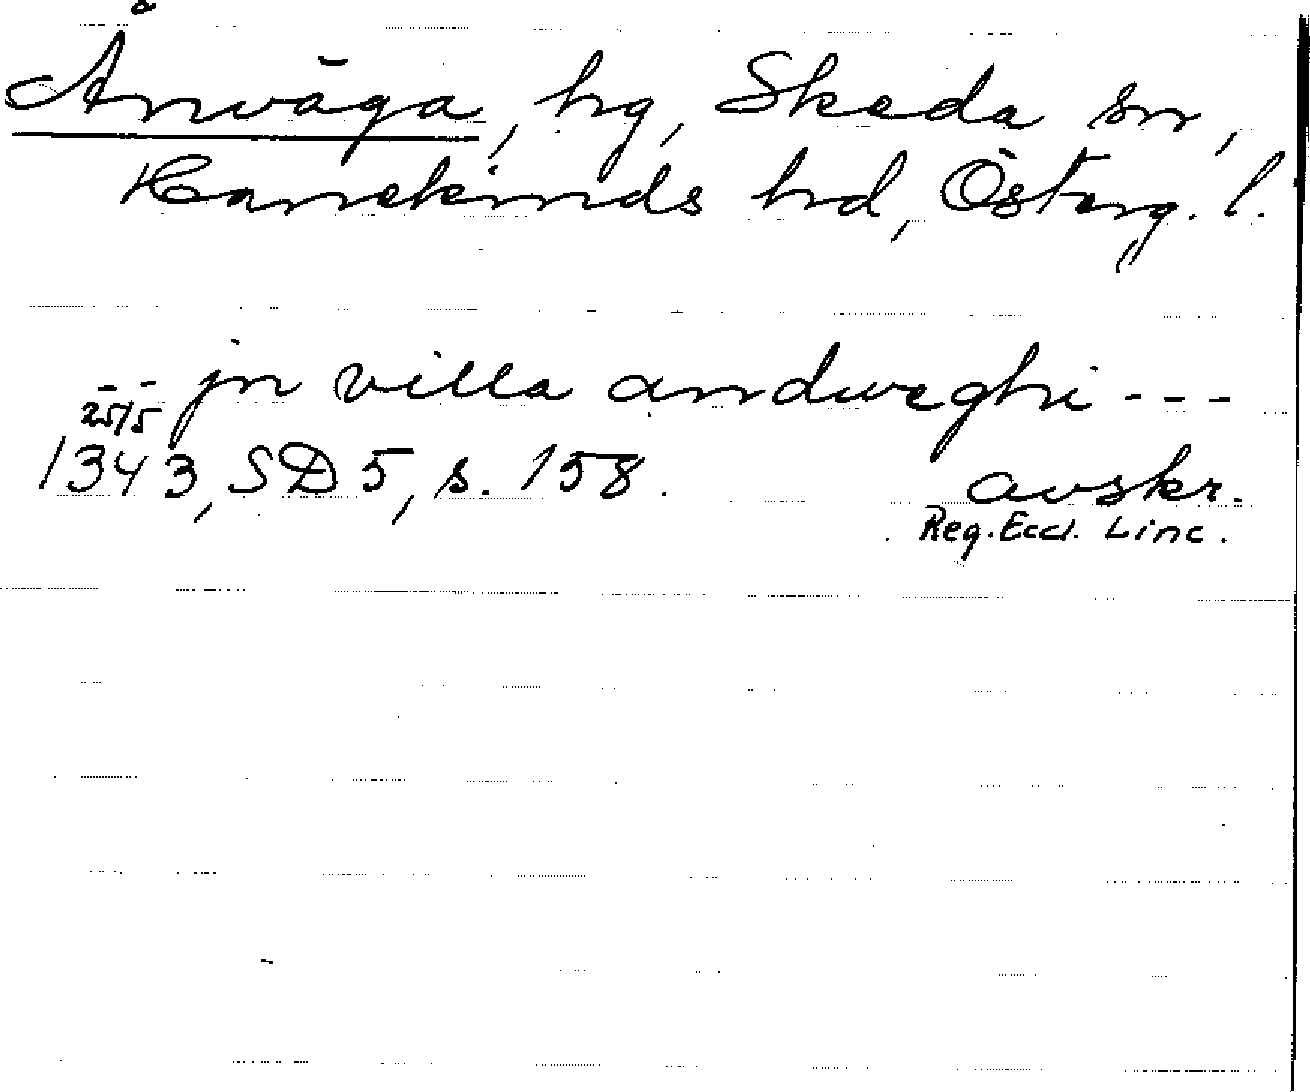 Ånväga, hg, Skeda sn,
Hanekinds hd, Österg. l.
- - jn villa andwæghi - - -
25/5
1343, SD 5, s. 158. avskr.
Reg. Eccl. Linc.